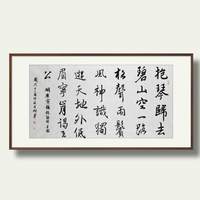 抱琴歸去
碧山空一路
松聲兩鬢
風神識獨
遊天地外低
眉寧肯謁王
公